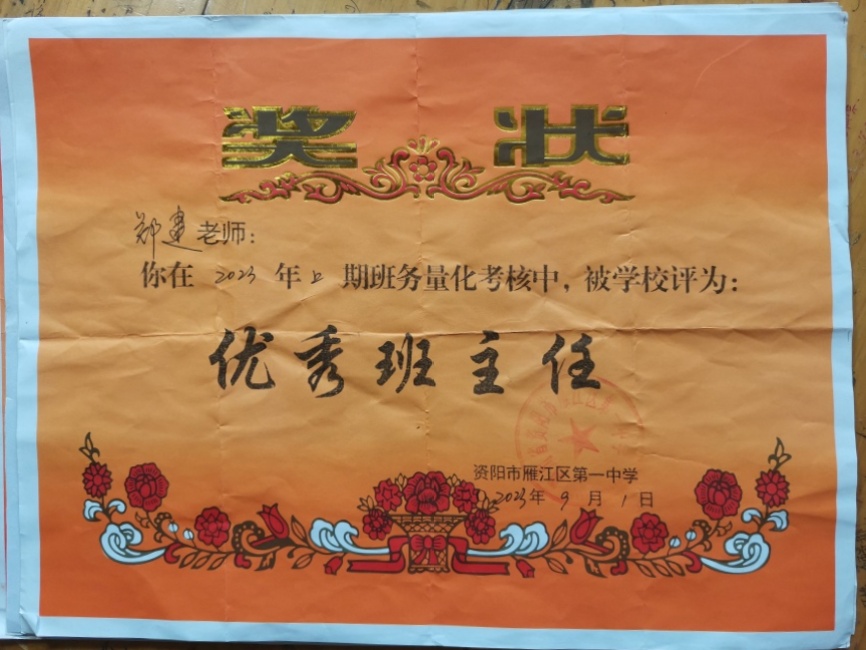 奖状
郑建老师:
你在 2023 年上期班务量化考核中,被学校评为:
优秀班主任
资阳市雁江区第一中学
2023年9月1日